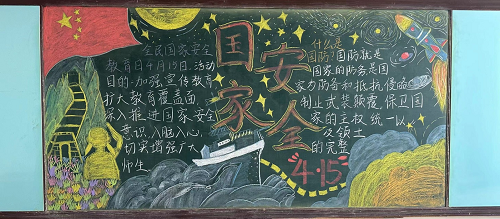 全民国家安全
教育日4月15日.活动
目的:加强宣传教育
扩大教育覆盖面
深入推进国家安全
意识入脑入心,
切实增强广大
师生
国家
安全
4·15
什么是
国防?国防就是
国家的防务是国
家为防备和抵抗侵略
制止武装颠覆,保卫国
家的主权统一以
及领土
的完整